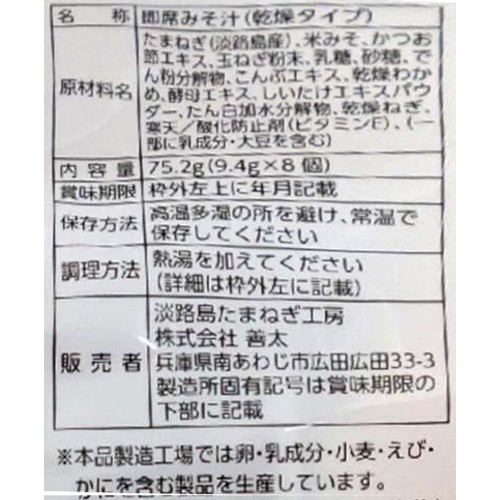 名称 即席みそ汁(乾燥タイプ)
原材料名
たまねぎ(淡路島産)、米みそ、かつお
節エキス、玉ねぎ粉末、乳糖、砂糖、で
ん粉分解物、こんぶエキス、乾燥わか
め、酵母エキス、しいたけエキスパウ
ダー、たん白加水分解物、乾燥ねぎ、
寒天/酸化防止剤(ビタミンE)、(一
部に乳成分・大豆を含む)
内容量 75.2g(9.4g×8個)
賞味期限 枠外左上に年月記載
保存方法
高温多湿の所を避け、常温で
保存してください
調理方法
熱湯を加えてください
(詳細は枠外左に記載)
販売者
淡路島たまねぎ工房
株式会社 善太
兵庫県南あわじ市広田広田33-3
製造所固有記号は賞味期限の
下部に記載
※本品製造工場では卵・乳成分・小麦・えび・
かにを含む製品を生産しています。